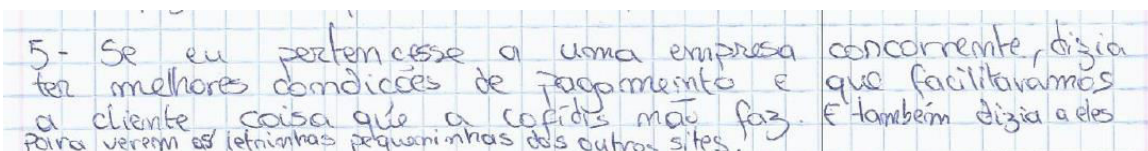 5- Se eu pertencesse a uma empresa concorrente, dizia
ter melhores condicões de pagamento e que facilitavamos
a cliente coisa que a cofidis não faz. E também dizia a eles
para verem as letrinhas pequeninhas dos outros sites.